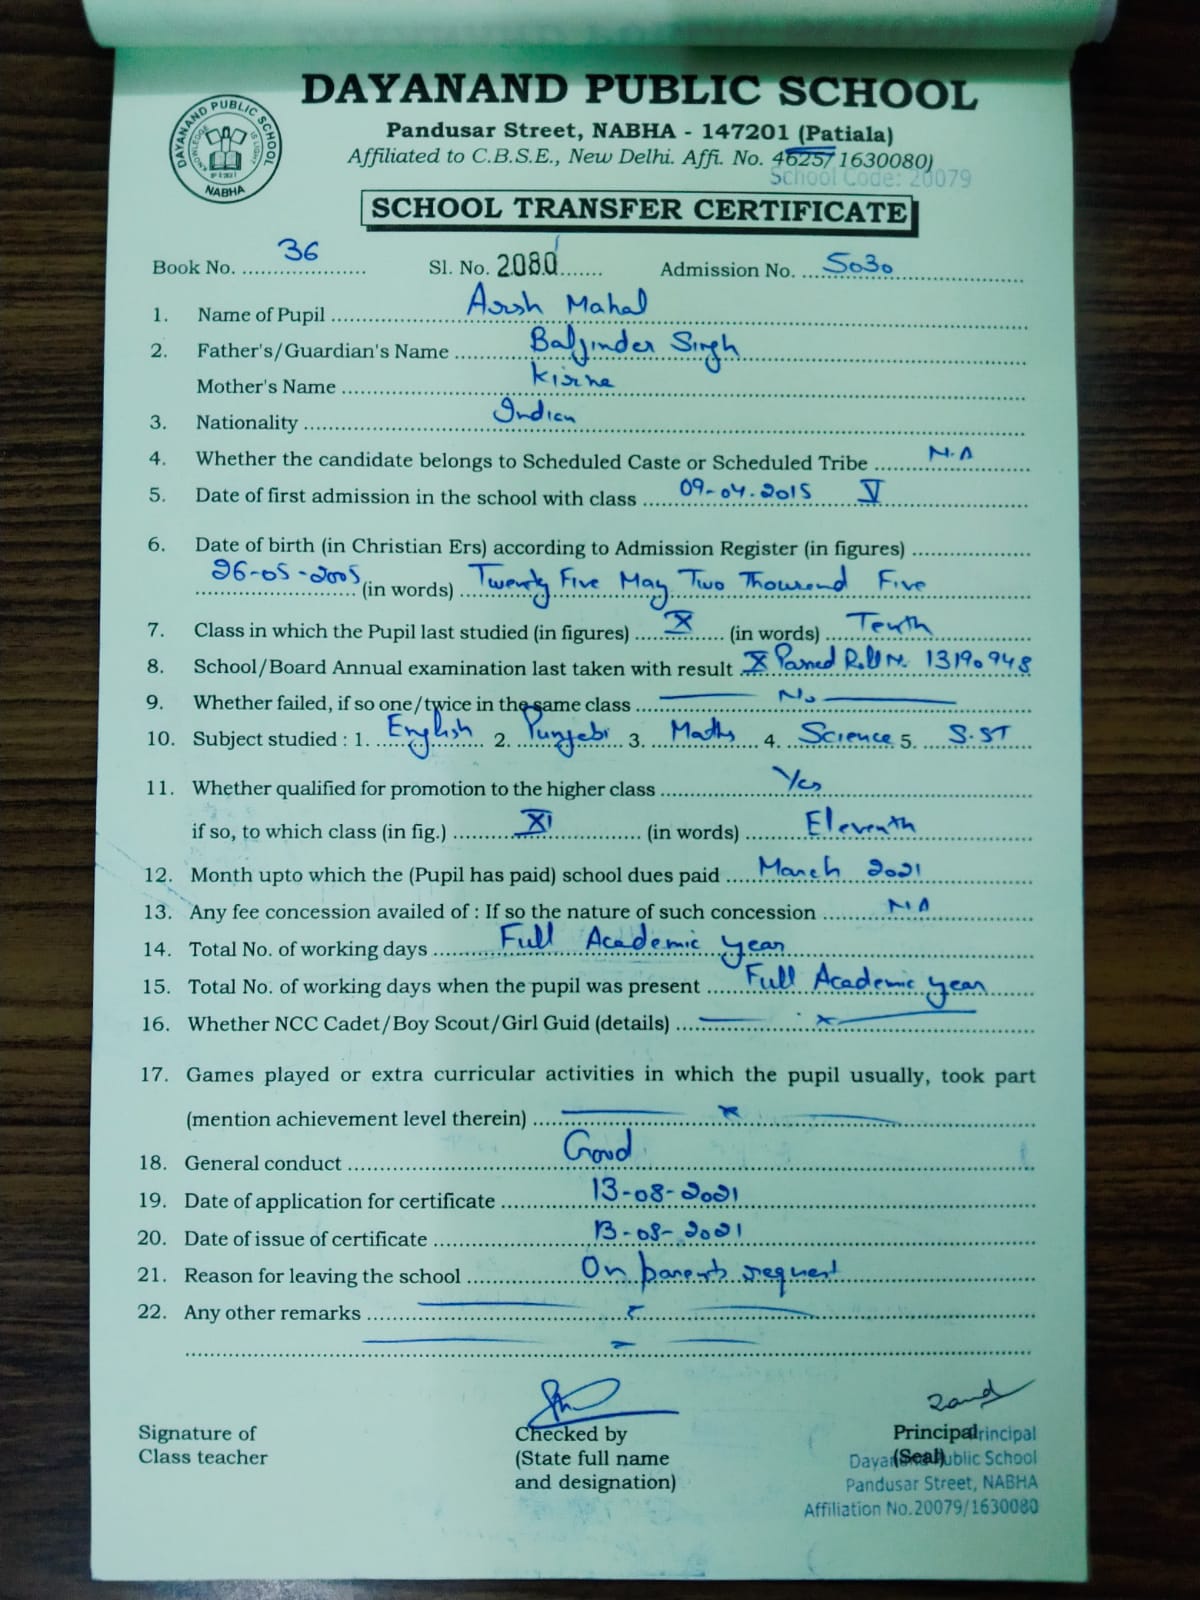 DAYANAND PUBLIC SCHOOL
DAYANAND PUBLIC SCHOOL
KNOWLEDGE IS LIGHT
NABHA
Pandusar Street, NABHA - 147201 (Patiala)
Affiliated to C.B.S.E., New Delhi. Affi. No. 46257 1630080)
School Code: 20079
SCHOOL TRANSFER CERTIFICATE
Book No. 36 Sl. No. 2080 Admission No. 5030
1. Name of Pupil Arsh Mahal
2. Father's/Guardian's Name Baljinder Singh
Mother's Name Kirne
3. Nationality Indian
4. Whether the candidate belongs to Scheduled Caste or Scheduled Tribe N.A
5. Date of first admission in the school with class 09-04.2015 V
6. Date of birth (in Christian Ers) according to Admission Register (in figures)
26-05-2005 (in words) Twenty Five May Two Thousand Five
7. Class in which the Pupil last studied (in figures) X (in words) Tenth
8. School/Board Annual examination last taken with result X Passed Roll N. 13190948
9. Whether failed, if so one/twice in the same class No
10. Subject studied : 1. English 2. Punjabi 3. Maths 4. Science 5. S.ST
11. Whether qualified for promotion to the higher class Yes
if so, to which class (in fig.) XI (in words) Eleventh
12. Month upto which the (Pupil has paid) school dues paid March 2021
13. Any fee concession availed of : If so the nature of such concession N A
14. Total No. of working days Full Academic year
15. Total No. of working days when the pupil was present Full Academic year
16. Whether NCC Cadet/Boy Scout/Girl Guid (details) x
17. Games played or extra curricular activities in which the pupil usually, took part
(mention achievement level therein) x
18. General conduct Good
19. Date of application for certificate 13-08-2021
20. Date of issue of certificate 13-08-2021
21. Reason for leaving the school On parents request
22. Any other remarks
Signature of Checked by Principal Principal
Class teacher (State full name (Seal) Dayanand Public School
and designation) Pandusar Street, NABHA
Affiliation No.20079/1630080